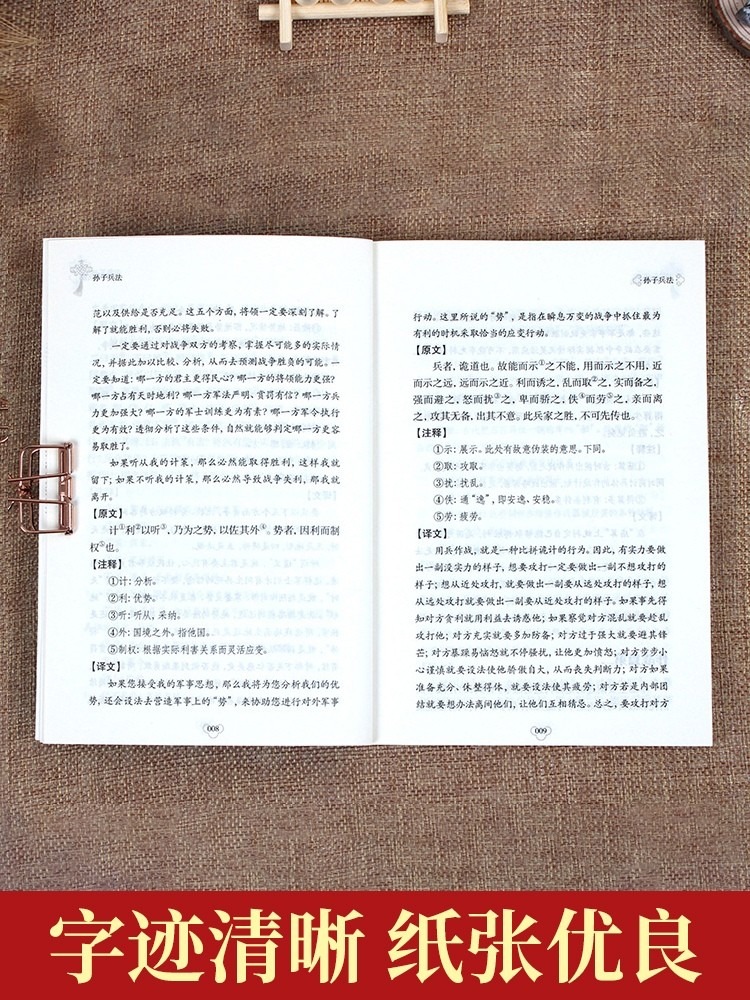 孙子兵法
范以及供给是否充足。这五个方面，将领一定要深刻了解。了
解了就能胜利，否则必将失败。
一定要通过对战争双方的考察，掌握尽可能多的实际情
况，并据此加以比较、分析，从而去预测战争胜负的可能。一
定要知道：哪一方的君主更得民心？哪一方的将领能力更强？
哪一方占有天时地利？哪一方军法严明、赏罚有信？哪一方兵
力更加强大？哪一方的军士训练更为有素？哪一方军令执行
更为有效？透彻分析了这些条件，自然就能够判定哪一方更容
易取胜了。
如果听从我的计策，那么必然能取得胜利，这样我就
留下；如果不听我的计策，那么必然导致战争失利，那我就
离开。
【原文】
计①利②以听③，乃为之势，以佐其外④。势者，因利而制
权⑤也。
【注释】
①计：分析。
②利：优势。
③听：听从，采纳。
④外：国境之外。指他国。
⑤制权：根据实际利害关系而灵活应变。
【译文】
如果您接受我的军事思想，那么我将为您分析我们的优
势，还会设法去营造军事上的“势”，来协助您进行对外军事
008
孙子兵法
行动。这里所说的“势”，是指在瞬息万变的战争中抓住最为
有利的时机采取恰当的应变行动。
【原文】
兵者，诡道也。故能而示①之不能，用而示之不用，近
而示之远，远而示之近。利而诱之，乱而取②之，实而备之，
强而避之，怒而扰③之，卑而骄之，佚④而劳⑤之，亲而离
之，攻其无备，出其不意。此兵家之胜，不可先传也。
【注释】
①示：展示。此处有故意伪装的意思。下同。
②取：攻取。
③扰：扰乱。
④佚：通“逸”，即安逸、安稳。
⑤劳：疲劳。
【译文】
用兵作战，就是一种比拼诡计的行为。因此，有实力要做
出一副没实力的样子，想要攻打一定要做出一副不想攻打的
样子；想从近处攻打，就要做出一副要从远处攻打的样子，想
从远处攻打就要做出一副要从近处攻打的样子。如果事先得
知对方贪利就用利益去诱惑他；如果察觉对方混乱就要趁乱
攻打他；对方充实就要多加防备；对方过于强大就要避其锋
芒；对方暴躁易恼怒就不停骚扰，让他更加愤怒；对方步步小
心谨慎就要设法使他骄傲自大，从而丧失判断力；对方如果
准备充分、休整得体，就要设法使其疲劳；对方若是内部团
结就要想办法离间他们，让他们互相猜忌。总之，要攻打对方
009
字迹清晰 纸张优良